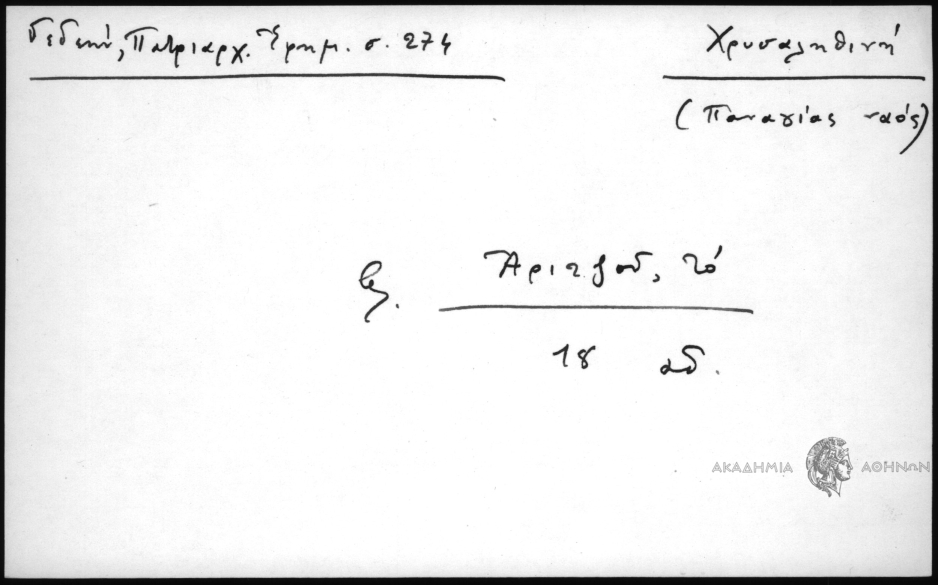 Γεδεών, Πατριαρχ. Ἐφημ. σ. 274
Χρυσαληθινή
(Παναγίας ναός)
βλ.
τό
18 αἰ.
ΑΚΑΔΗΜΙΑ ΑΘΗΝΩΝ